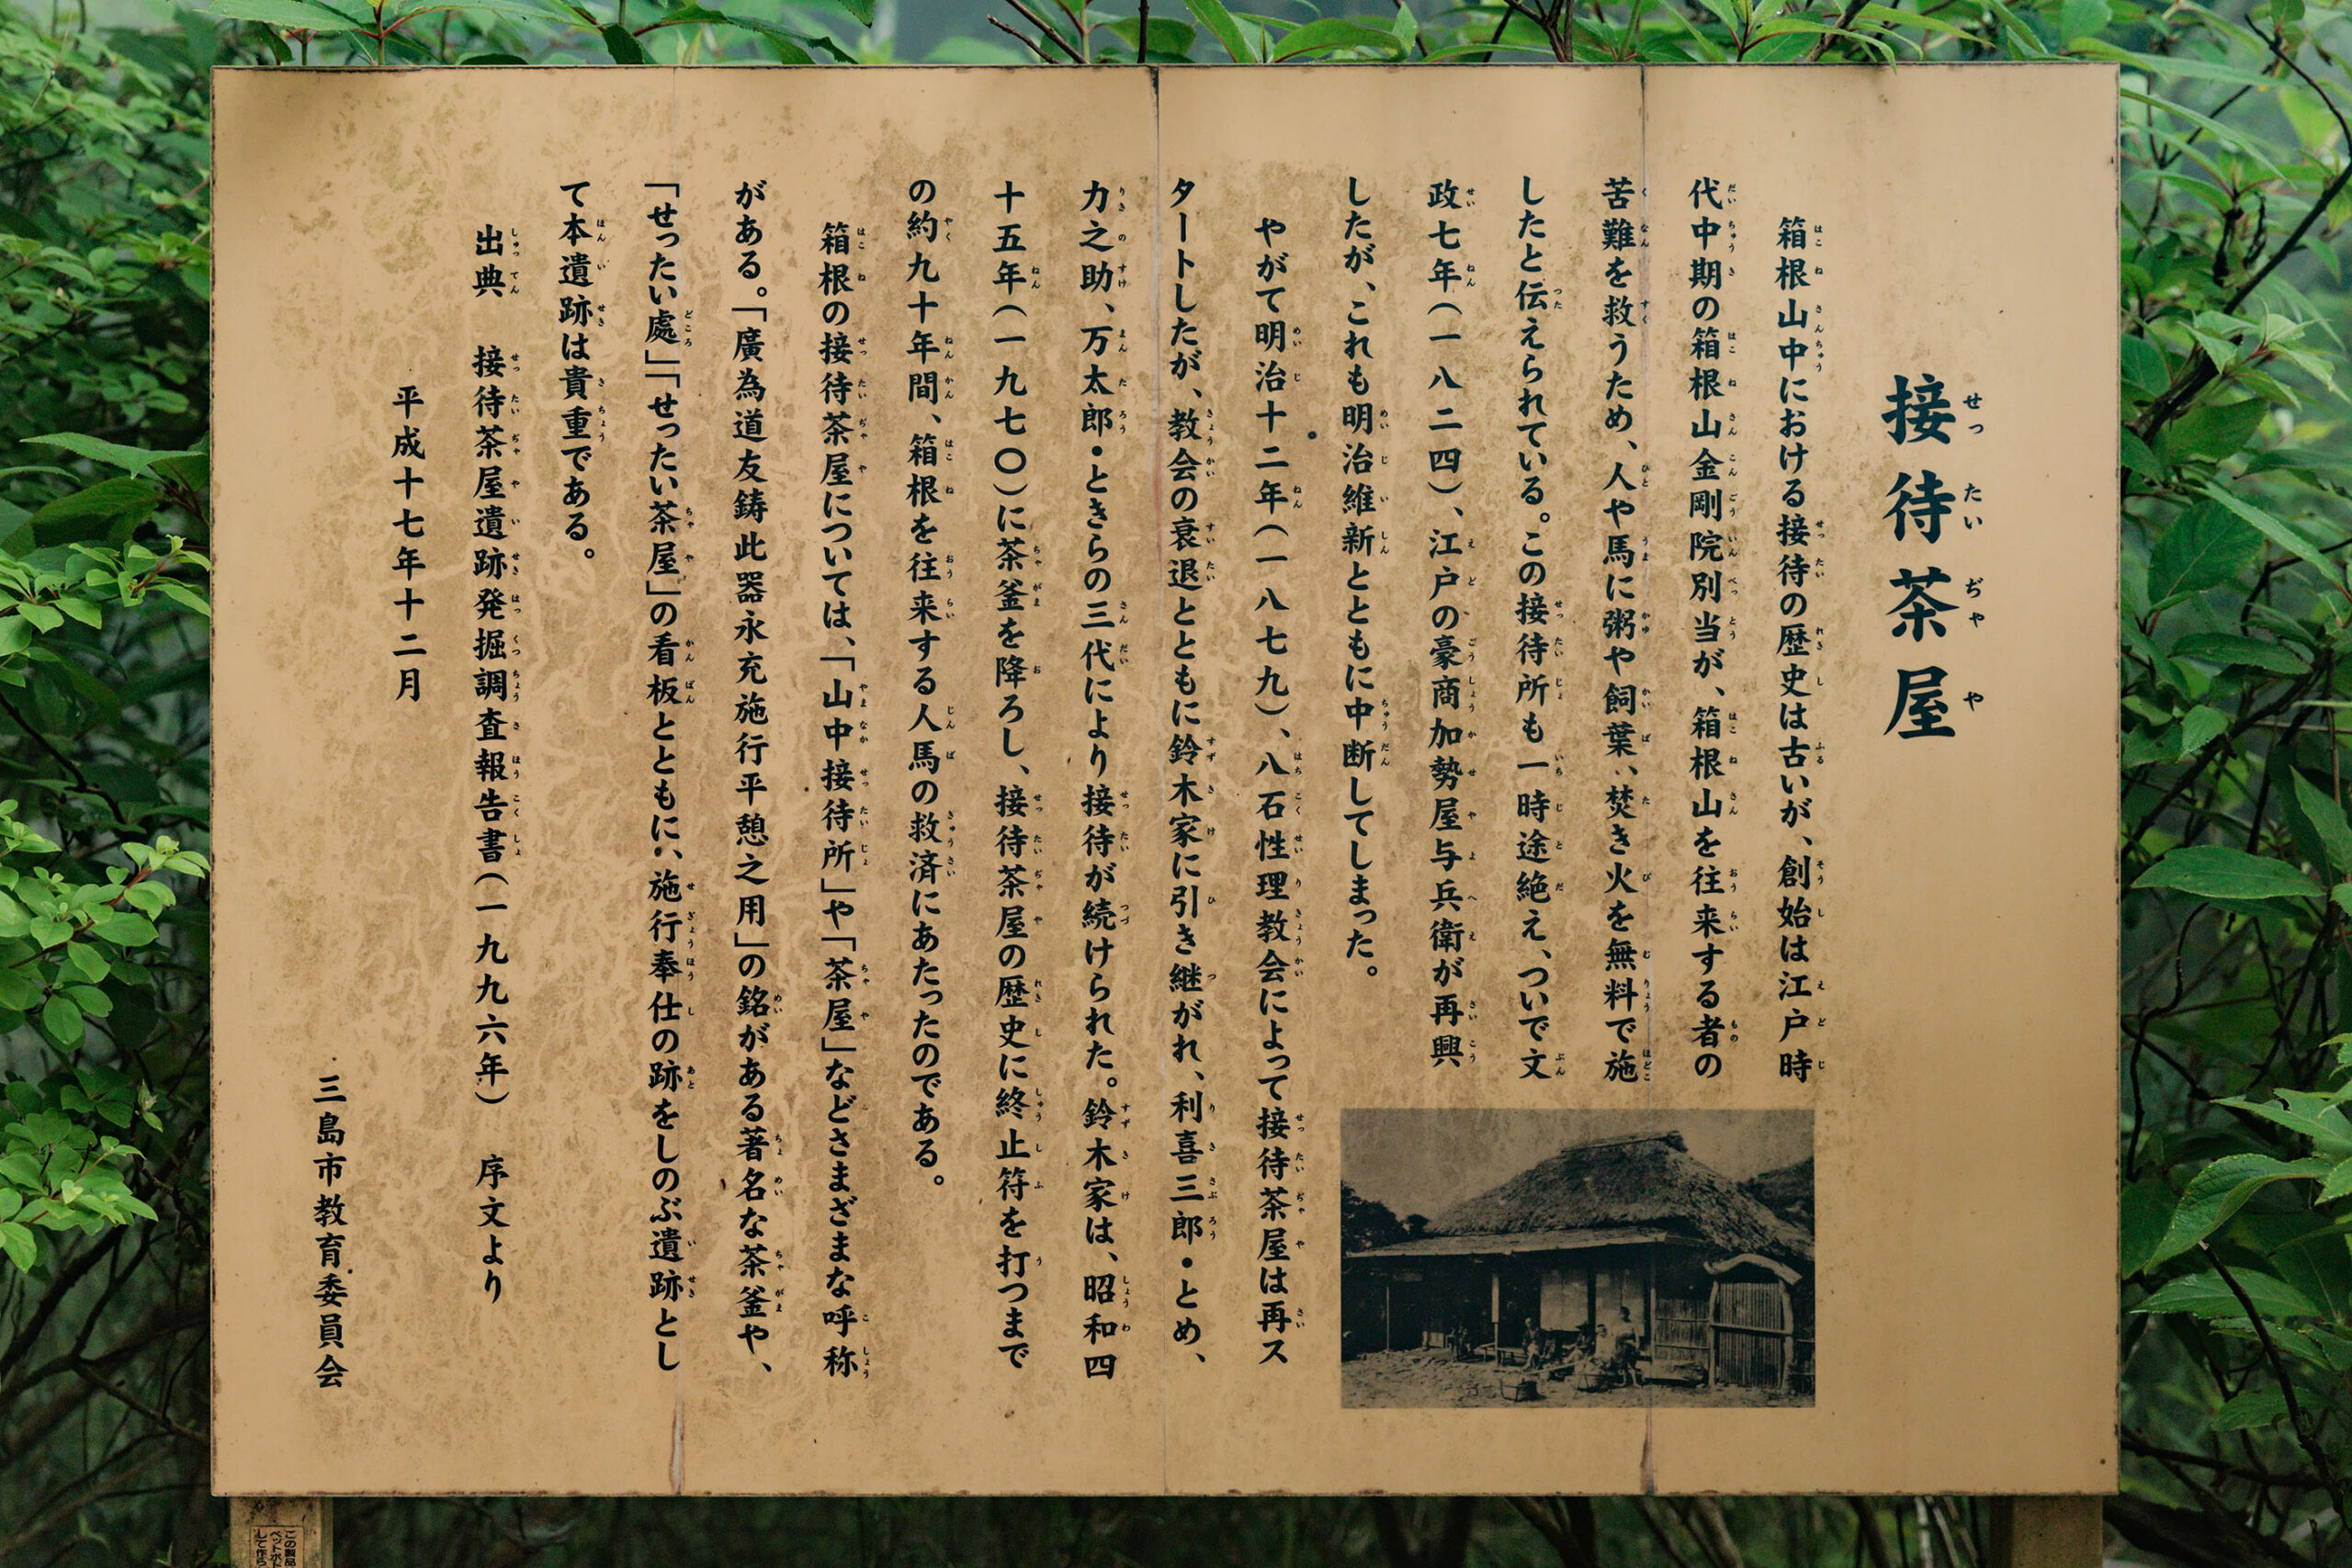 接待茶屋
箱根山中における接待の歴史は古いが、創始は江戸時
代中期の箱根山金剛院別当が、箱根山を往来する者の
苦難を救うため、人や馬に粥や飼葉、焚き火を無料で施
したと伝えられている。この接待所も一時途絶え、ついで文
政七年(一八二四)、江戸の豪商加勢屋与兵衛が再興
したが、これも明治維新とともに中断してしまった。
やがて明治十二年(一八七九)、八石性理教会によって接待茶屋は再ス
タートしたが、教会の衰退とともに鈴木家に引き継がれ、利喜三郎・とめ、
力之助、万太郎・ときらの三代により接待が続けられた。鈴木家は、昭和四
十五年(一九七〇)に茶釜を降ろし、接待茶屋の歴史に終止符を打つまで
の約九十年間、箱根を往来する人馬の救済にあたったのである。
箱根の接待茶屋については、「山中接待所」や「茶屋」などさまざまな呼称
がある。「廣為道友鋳此器永充施行平憩之用」の銘がある著名な茶釜や、
「せったい處」「せったい茶屋」の看板とともに、施行奉仕の跡をしのぶ遺跡とし
て本遺跡は貴重である。
出典 接待茶屋遺跡発掘調査報告書(一九九六年) 序文より
平成十七年十二月
三島市教育委員会
この製品
ペットボト
して作ら